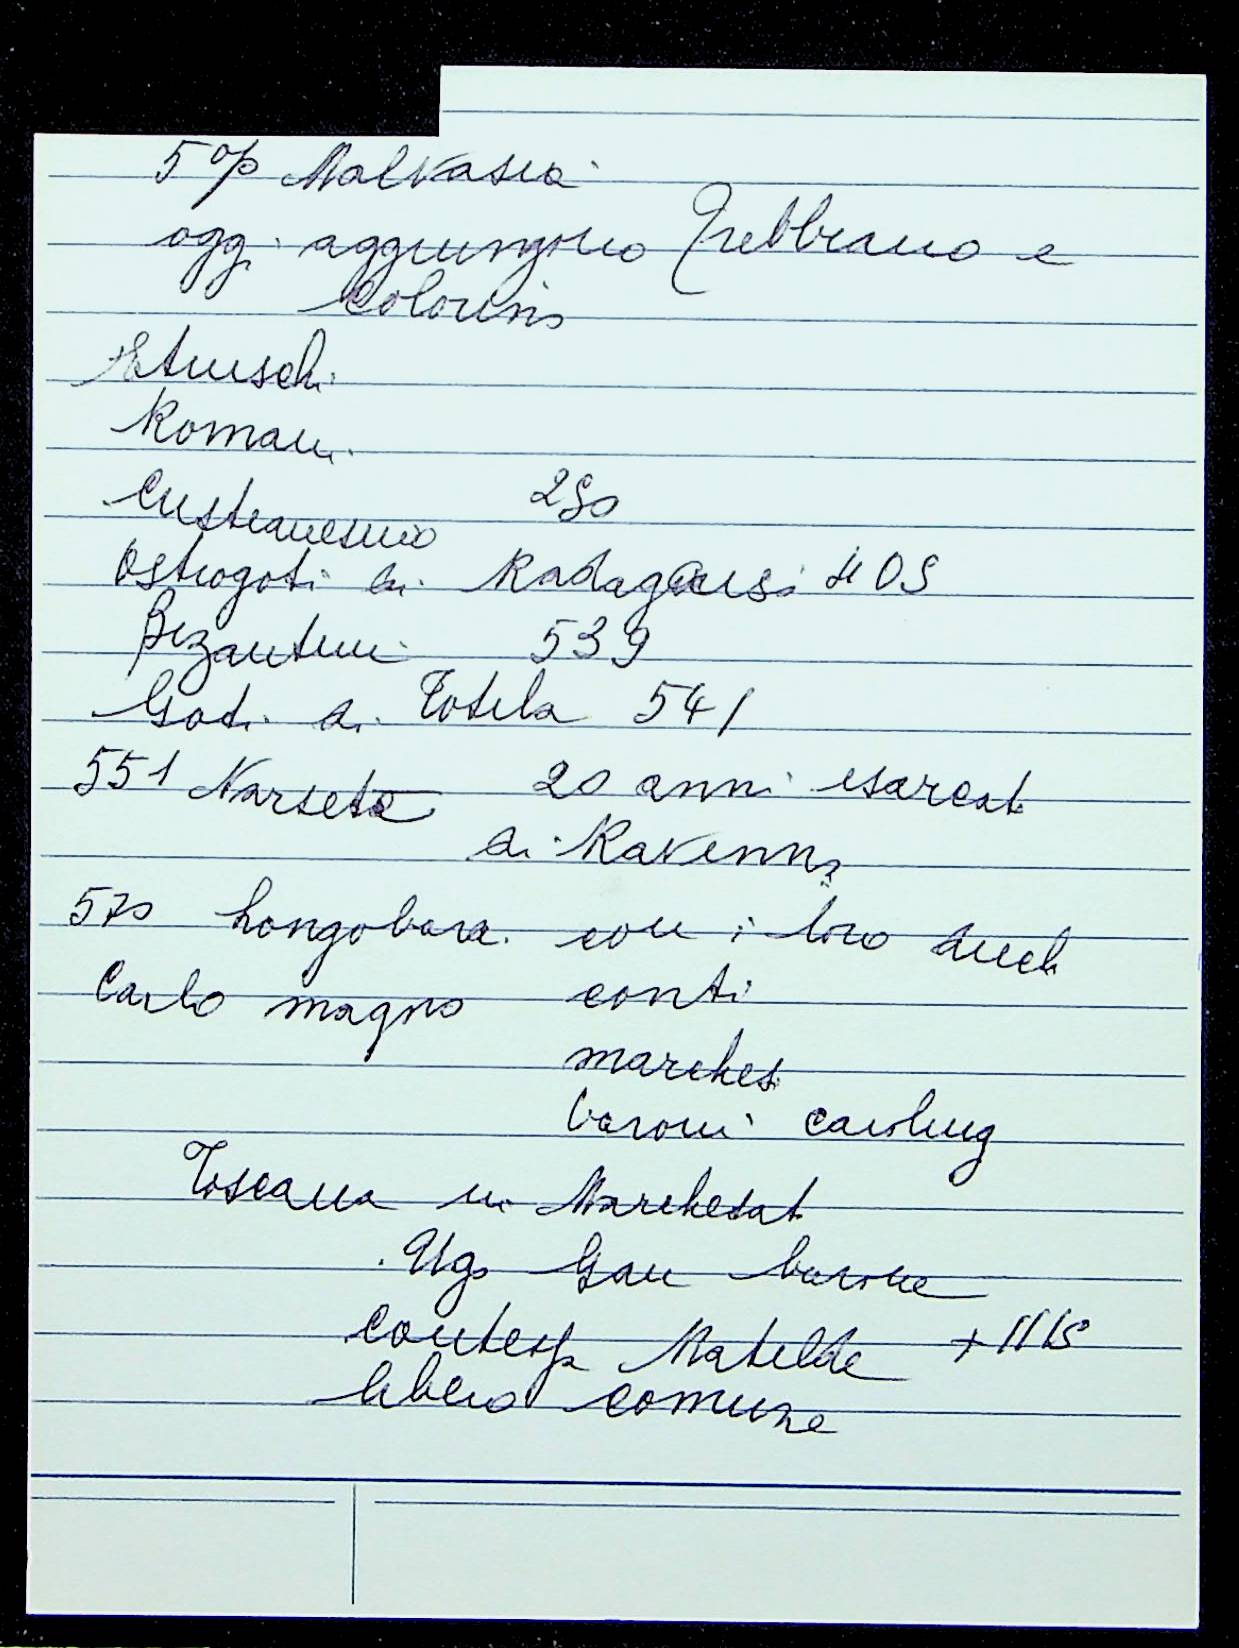 5 % Malvasia
oggi aggiungono Trebbiano e
Colorino
Etruschi
Romani
Cristianesimo 250
Ostrogoti di Radagausi 405
Bizantini 539
Goti di Totila 541
551 Narsete 20 anni esarcat
di Ravenna
570 Longobardi con i loro duchi
Carlo magno conti
marchesi
baroni caroling
Toscana in Marchesat
Ugo Gran barone
Contessa Matilde + 1115
libero comune